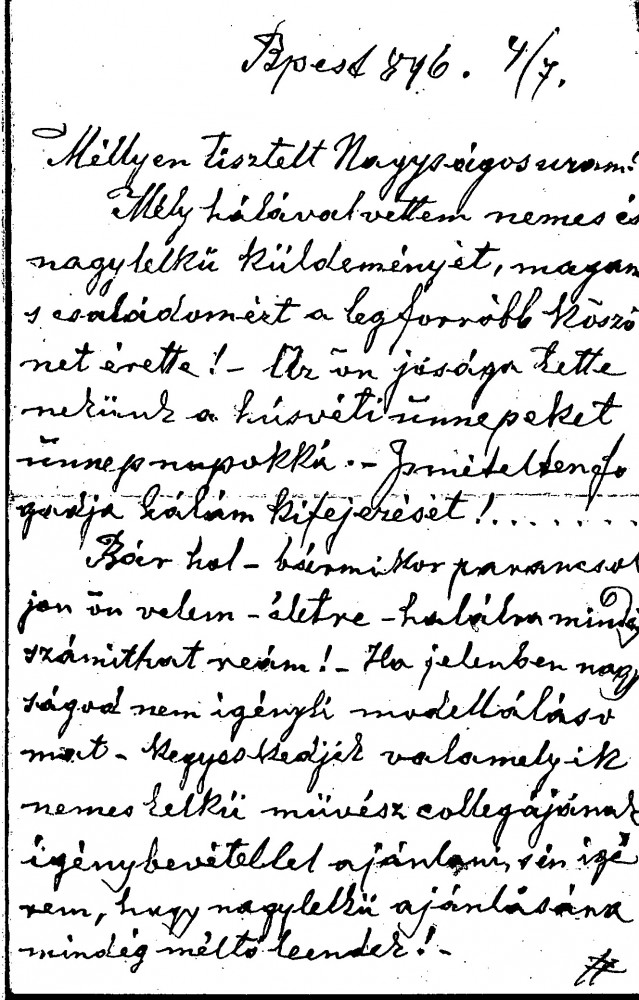 Bpest 896. 4/7.
Méllyen tisztelt Nagyságos uram!
Mély hálával vettem nemes és
nagylelkü küldeményét, magam
s családomért a legforróbb köszö
net érette! - Az ön jósága tette
nekünk a húsvéti ünnepeket
ünnepnapokká. - Ismételten fo
gadja hálám kifejezését! . . . . . . .
Bár hol - bármikor parancsol
jon ön velem - életre - halálra mindig
számithat reám! - Ha jelenben nagy
ságod nem igényli modelláláso
mat - kegyeskedjék valamelyik
nemes lelkü müvész collegájának
igénybevétellel ajánlani, én igé
rem, hogy nagylelkü ajánlására
mindég méltó leendek! -